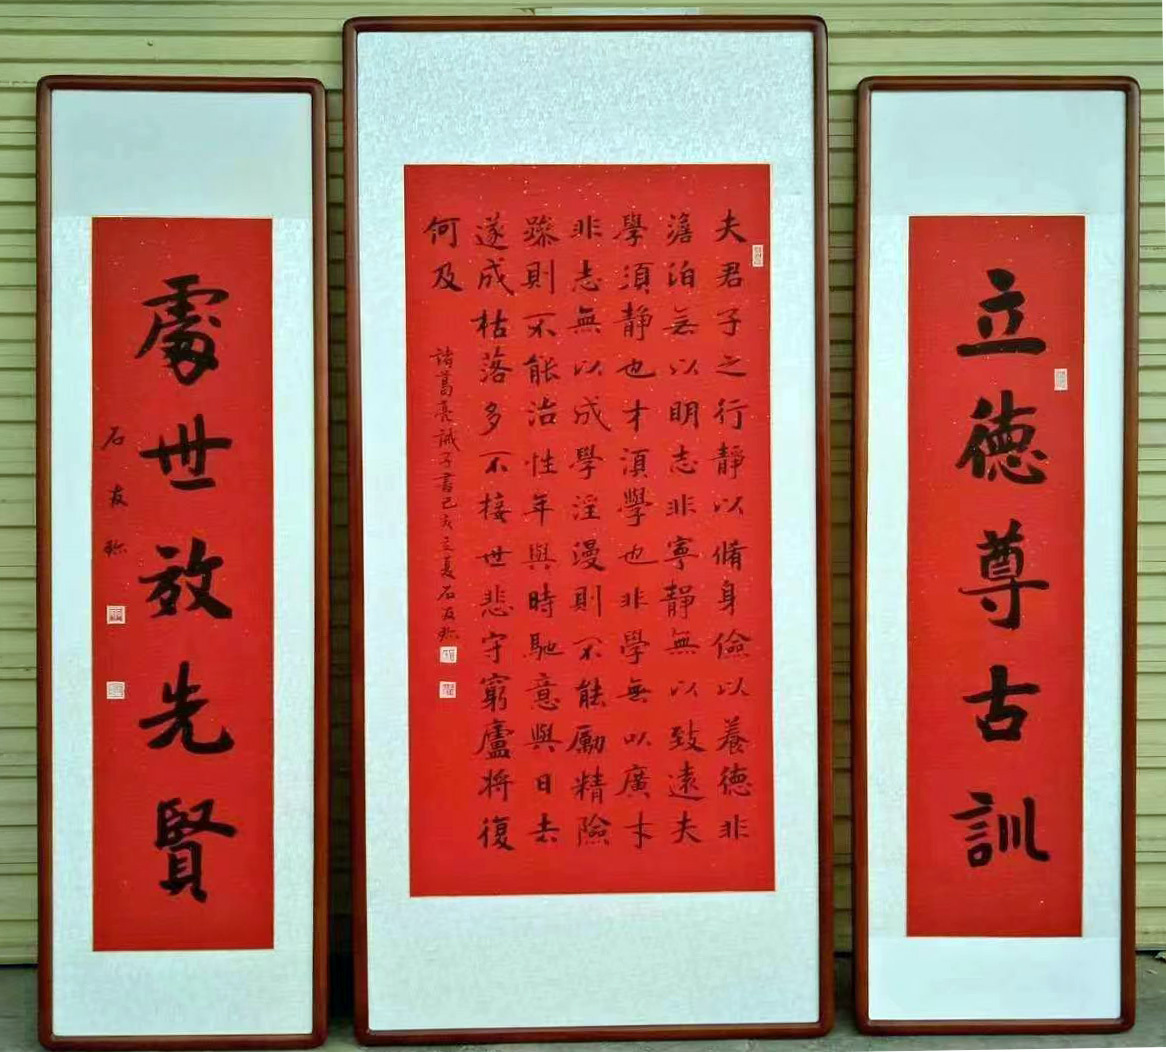 立德尊古訓
夫君子之行靜以脩身儉以養德非
澹泊無以明志非寧靜無以致遠夫
學須静也才須學也非學無以廣才
非志無以成學淫漫則不能勵精險
躁則不能治性年與時馳意與日去
遂成枯落多不接世悲守窮廬將復
何及
諸葛亮誡子書己亥立夏石友
處世效先賢
石友